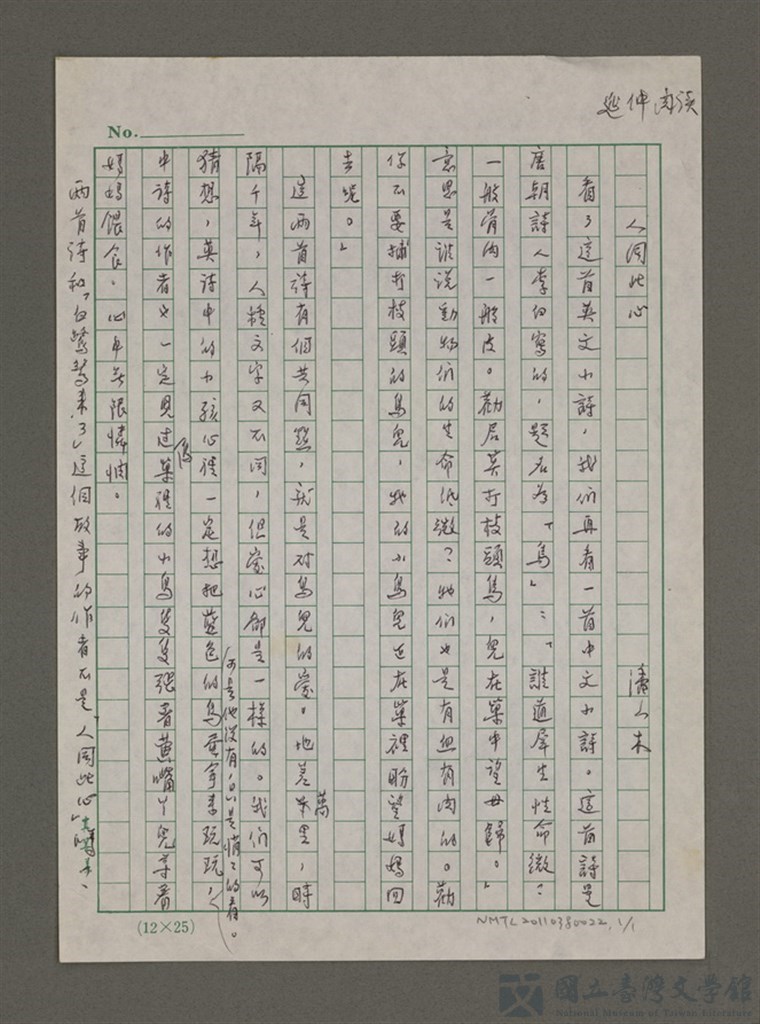 延伸閱讀
No.
人同此心
潘人木
看了這首英文小詩，我們再看一首中文小詩。這首詩是
唐朝詩人李白寫的，題名為「鳥」：「誰道羣生性命微？
一般骨肉一般皮。勸君莫打枝頭鳥，兒在巢中望母歸。」
意思是誰說動物們的生命低微？牠們也是有血有肉的。勸
你不要捕打枝頭的鳥兒，牠的小鳥兒正在巢裡盼望媽媽回
去呢。」
這兩首詩有個共同點，就是對鳥兒的愛。地差萬里，時
隔千年，人種文字又不同，但愛心都是一樣的。我們可以
猜想，英詩中的小孩心裡一定想把藍色的鳥蛋拿來玩玩，
可是他沒有，只是悄悄的看。
中詩的作者也一定見過鳥巢裡的小鳥隻隻張著黃嘴丫兒等着
媽媽餵食。心中無限憐憫。
兩首詩和「白鷺鷥來了」這個故事的作者不是「人同此心」
(12×25)
NMTL20110380022, 1/1
國立臺灣文學館
National Museum of Taiwan Literature